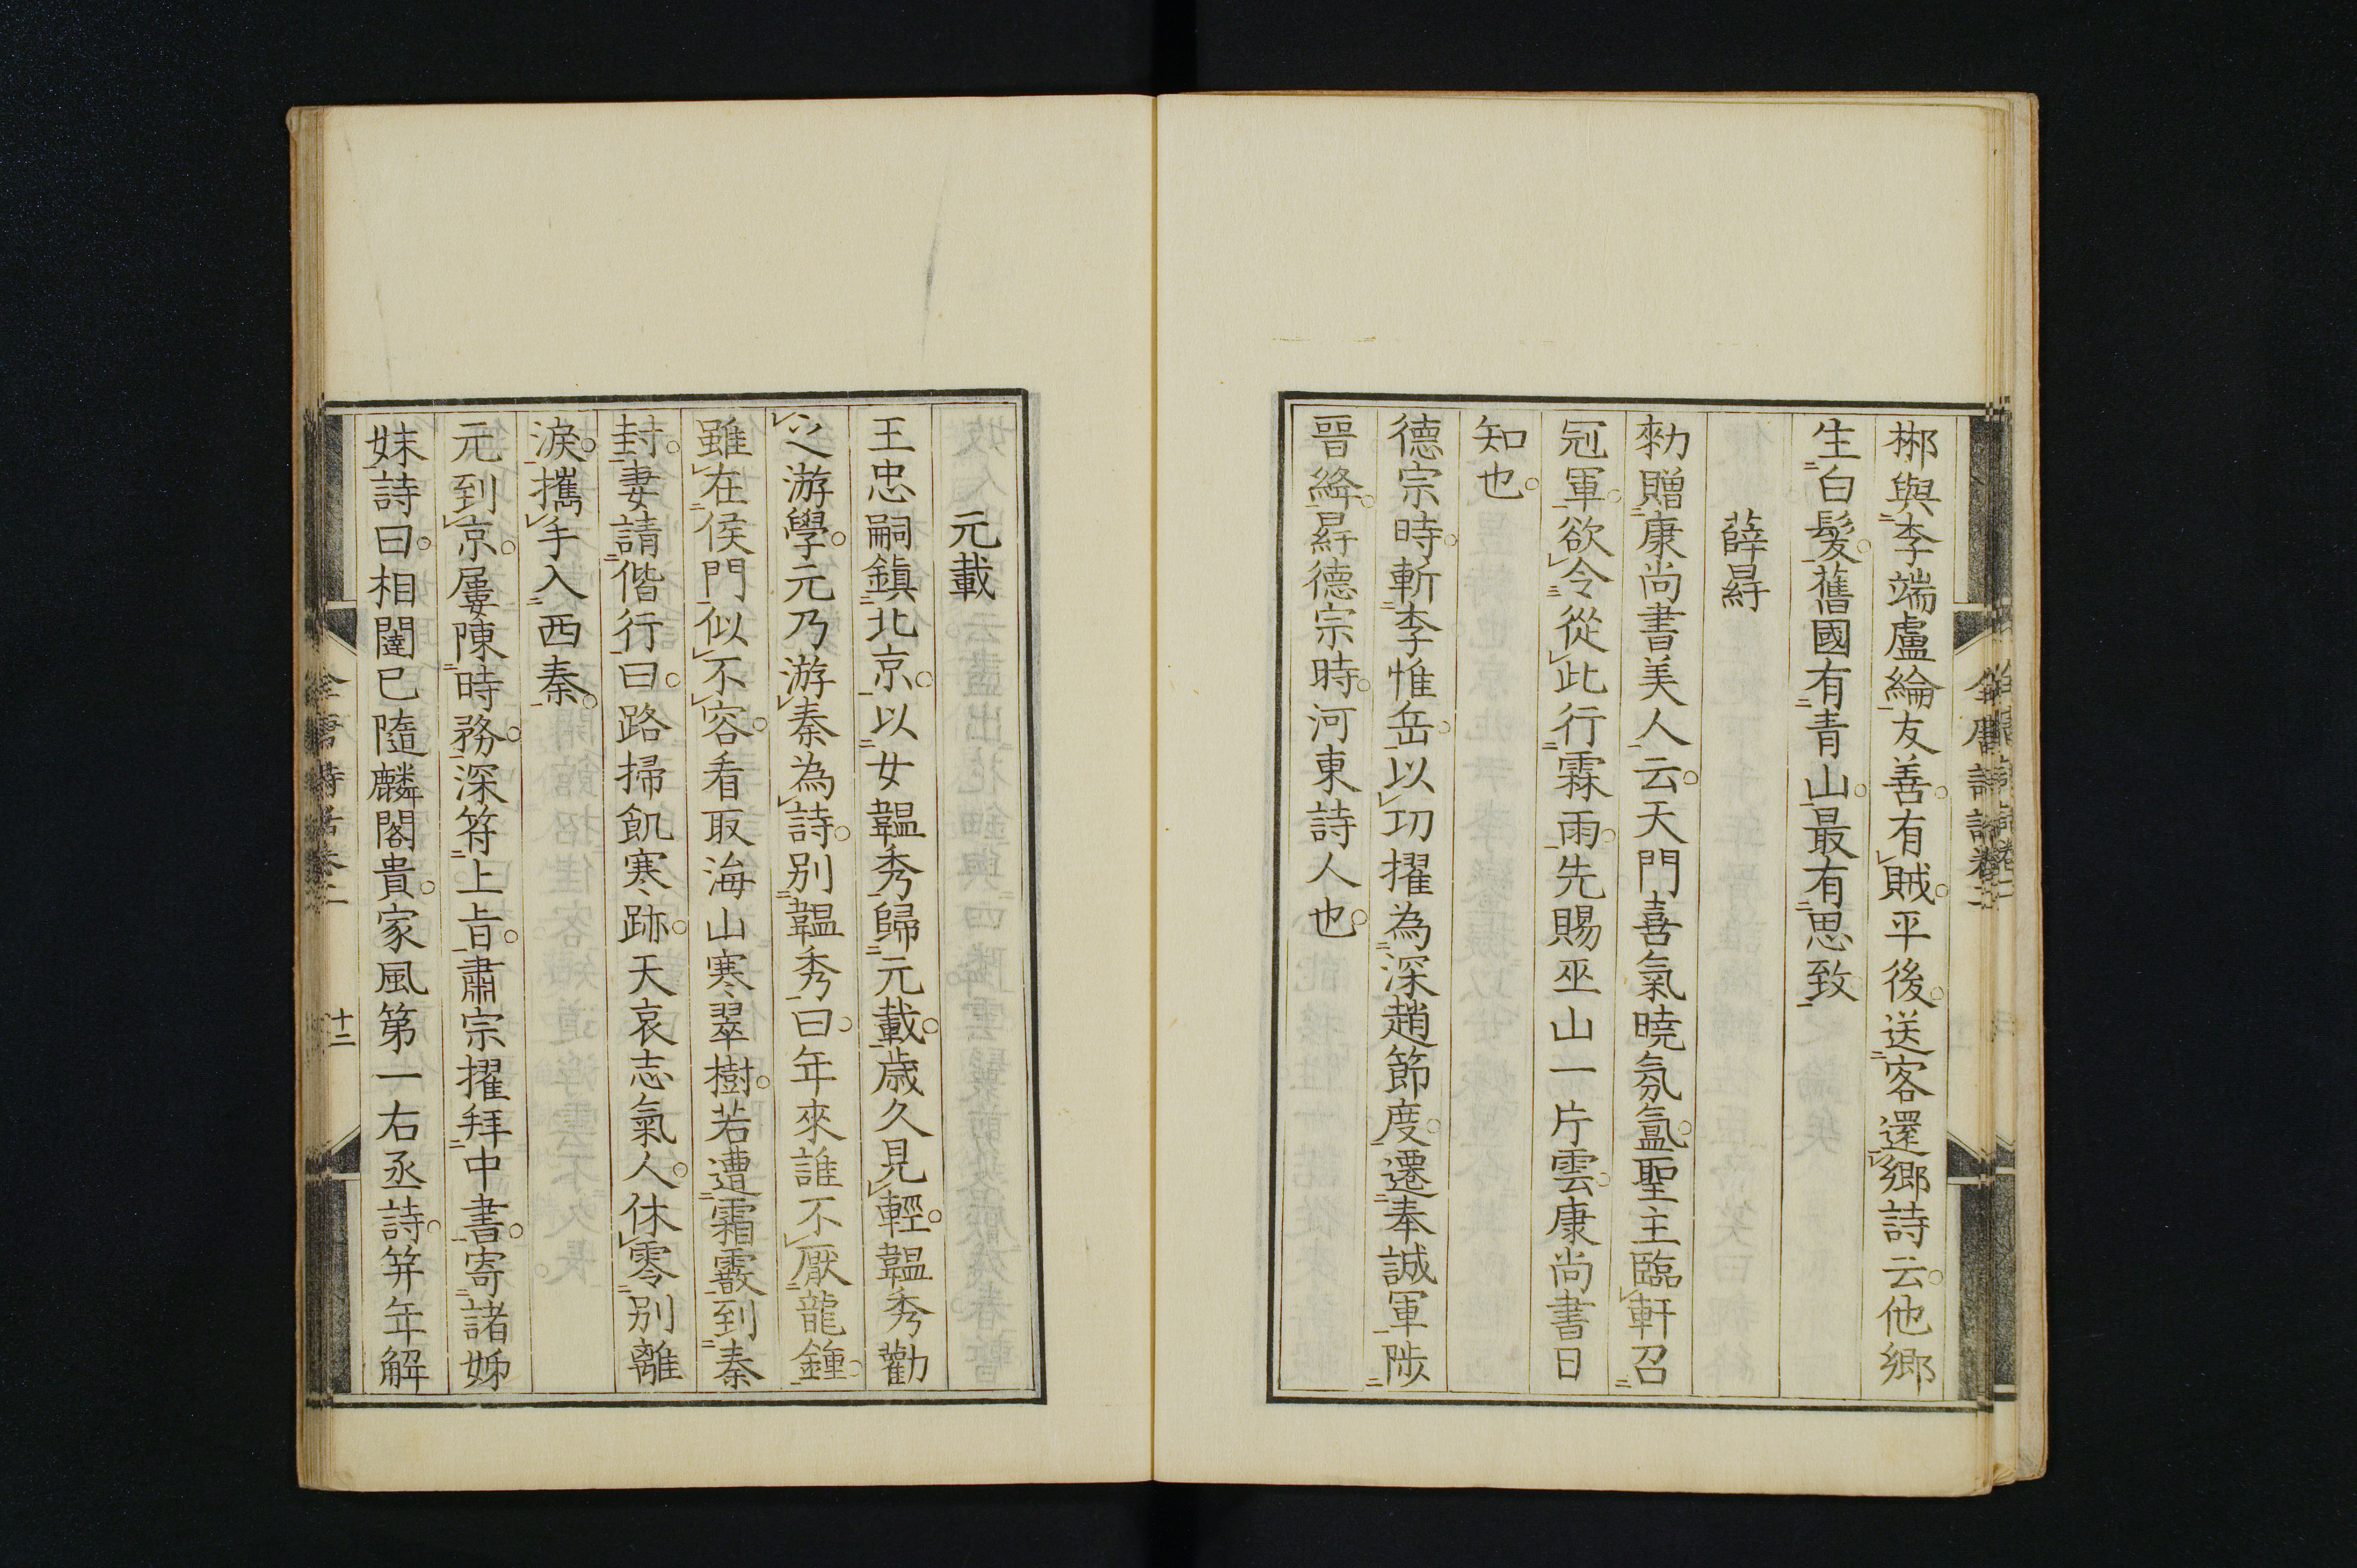 梆與李端盧綸友善有賊平後送客還鄉詩云他鄉
生白髮舊國有青山最有思致
薛昪
勑贈康尚書美人云天門喜氣曉氛氳聖主臨軒召
冠軍欲令從此行霖雨先賜巫山一片雲康尚書日
知也
德宗時斬李惟岳以功擢為深趙節度遷奉誠軍陟
晉絳昪德宗時河東詩人也
元載
王忠嗣鎮北京以女韞秀歸元載歳久見輕韞秀勸
之游學元乃游秦為詩别韞秀曰年來誰不厭龍鍾
雖在侯門似不容看取海山寒翠樹若遭霜霰到秦
封妻請偕行曰路掃飢寒跡天哀志氣人休零别離
淚攜手入西秦
元到京屢陳時務深符上旨肅宗擢拜中書寄諸姊
妹詩曰相國已隨麟閣貴家風第一右丞詩笄年解
全唐詩話卷二
十二